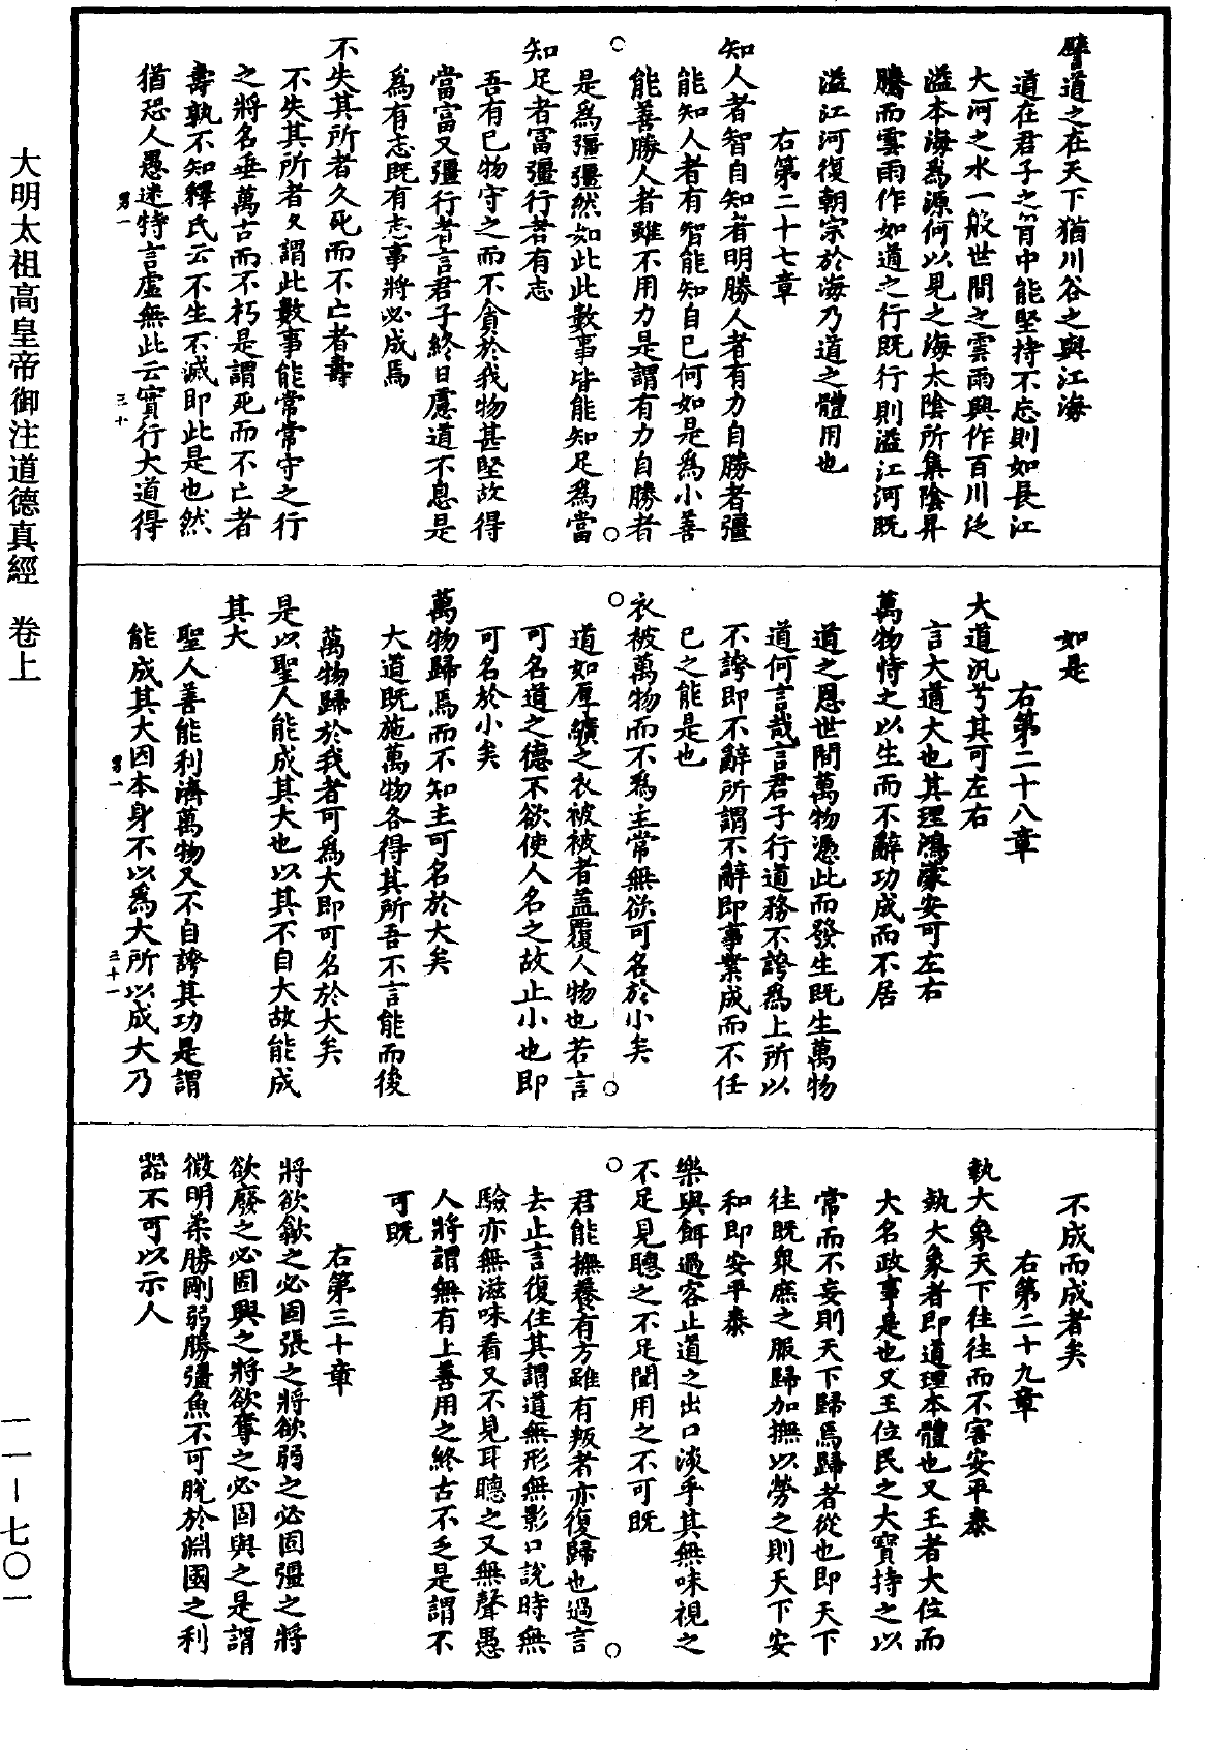 譬道之在天下猶川谷之與江海
道在君子之䏚中能堅持不忘則如長江
大河之水一般世間之雲雨興作百川泛
溢本海爲源何以見之海太陰所集陰昇
騰而雲雨作如道之行既行則溢江河既
溢江河復朝宗於海乃道之體用也
右第二十七章
知人者智自知者明勝人者有力自勝者彊
能知人者有智能知自己何如是爲小善
能善勝人者雖不用力是謂有力自勝者
是爲彊彊然如此此數事皆能知足爲當
知足者富彊行者有志
吾有已物守之而不貪於我物甚堅故得
當富又彊行者言君子終日慮道不息是
爲有志既有志事將必成焉
不失其所者久死而不亡者壽
不失其所者久謂此數事能常常守之行
之將名垂萬古而不朽是謂死而不亡者
壽孰不知釋氏云不生不滅即此是也然
猶恐人愚迷特言虛無此云實行大道得
男一
三十
如是
右第二十八章
大道汎兮其可左右
言大道大也其理鴻濛安可左右
萬物恃之以生而不辭功成而不居
道之恩世間萬物憑此而發生既生萬物
道何言哉言君子行道務不誇爲上所以
不誇即不辭所謂不辭即事業成而不任
已之能是也
衣被萬物而不爲主常無欲可名於小矣
道如厚纊之衣被被者蓋覆人物也若言
可名道之德不欲使人名之故止小也即
可名於小矣
萬物歸焉而不知主可名於大矣
大道既施萬物各得其所吾不言能而後
萬物歸於我者可爲大即可名於大矣
是以聖人能成其大也以其不自大故能成
其大
聖人善能利濟萬物又不自誇其功是謂
能成其大因本身不以爲大所以成大乃
男一
三十一
不成而成者矣
右第二十九章
執大象天下往往而不害安平泰
執大象者即道理本體也又王者大位而
大名政事是也又王位民之大寶持之以
常而不妄則天下歸焉歸者從也即天下
往既眾庶之服歸加撫以勞之則天下安
和即安平泰
樂與餌過客止道之出口淡乎其無味視之
不足見聽之不足聞用之不可既
君能撫養有方雖有叛者亦復歸也過言
去止言復住其謂道無形無影口說時無
驗亦無滋味看又不見耳聽之又無聲愚
人將謂無有上善用之終古不乏是謂不
可既
右第三十章
將欲歙之必固張之將欲弱之必固彊之將
欲廢之必固興之將欲奪之必固與之是謂
微明柔勝剛弱勝彊魚不可脫於淵國之利
器不可以示人
大明太祖高皇帝御注道德真經　卷上
一一－七〇一